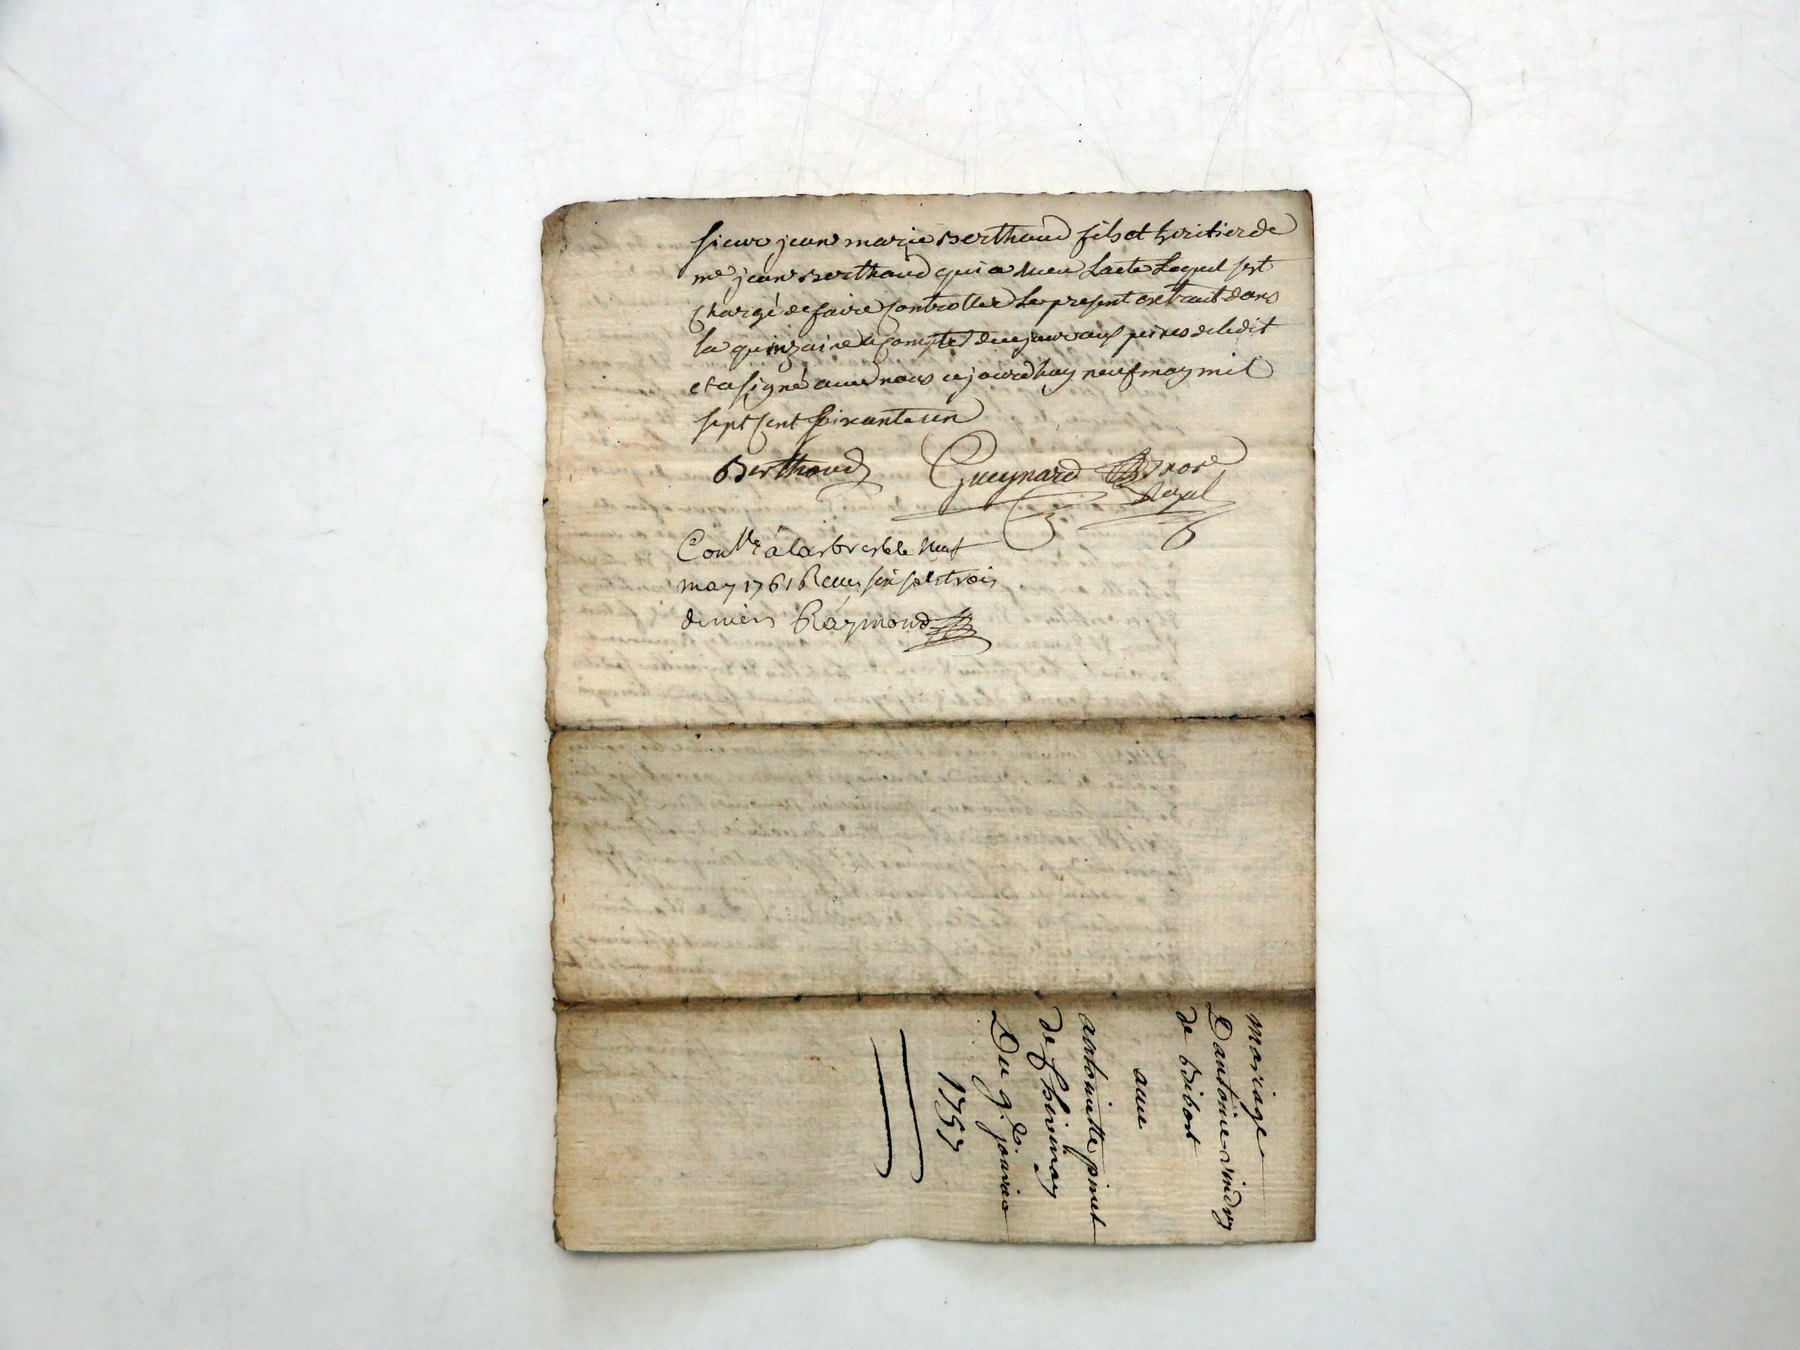 sieur jean marie Berthaud fils et heritier de
me jean Berthaud qui a receu lacte lequel sest
chargé de faire controller le present extrait dans
la quinzaine à compter de ce jour aux peines de ledit
et a signé avec nous cejourdhuy neuf may mil
sept cent soixante un
Berthaud Gueynard nore
Royal
Conllé à larbresle le neuf
may 1761 Receu six sols trois
deniers Raymond
mariage
Dantoine vindry
de Bibost
avec
antoinette pinet
de
Du 9e janvier
1757